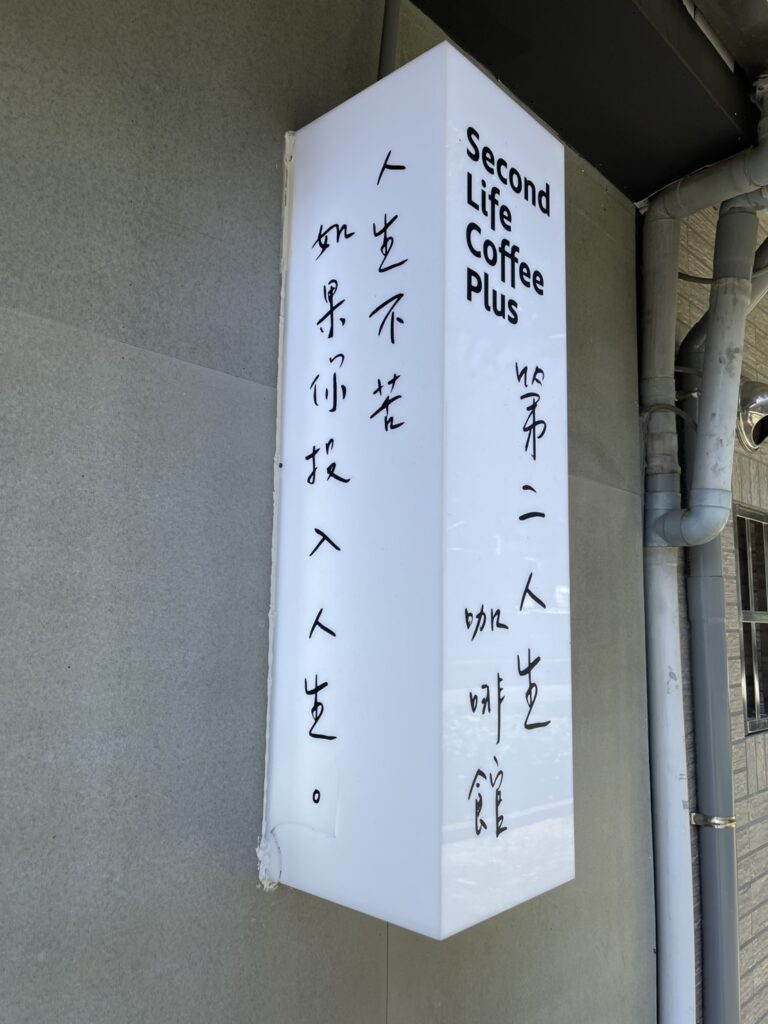 人生不苦
如果你投入人生。
Second
Life
Coffee
Plus
第二人生
咖啡館